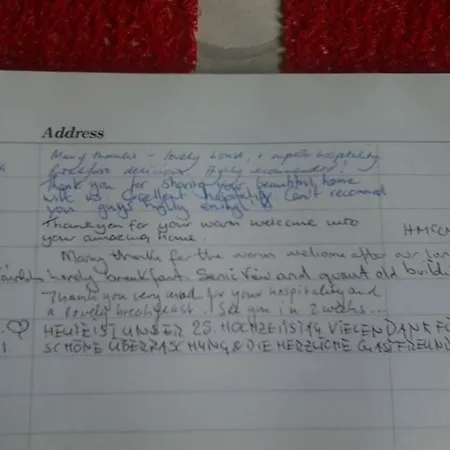 Address
Many thanks - lovely home, + superb hospitality
Breakfast delicious. Highly recommended!
Thank you for sharing your beautiful home
with us. Excellent hospitality. Can't recommend
you guys highly enough!
Thank you for your warm welcome into
your amazing home.
Many thanks for the warm welcome after our
lovely breakfast. Semi view and quant old
Thank you very mud for your hospitality and
a lovely breakfast. See you in 2 weeks...
HEUTE IST UNSER 25. HOCHZEITSTAG VIELEN DANK FÜ
SCHÖNE ÜBERRASCHUNG & DIE HERZLICHE GASTFREUND